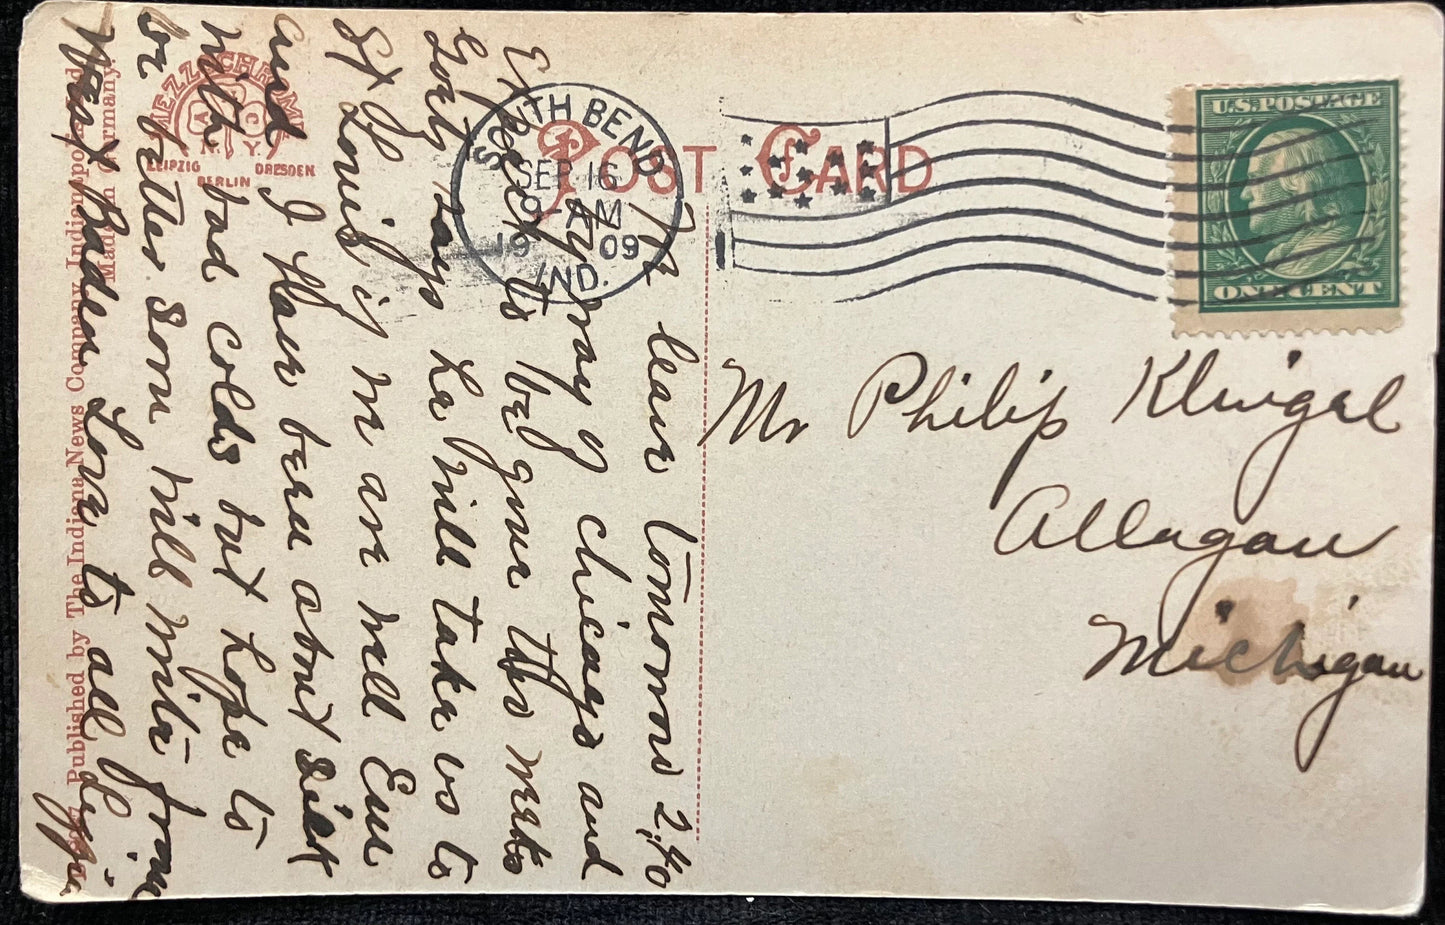 POST CARD
SOUTH BEND
SEP 16
9 AM
1909
IND.
U.S. POSTAGE
ONE CENT
Mr Philip Klingel
Allegan
Michigan
We leave Tomorrow 2,40
by way of Chicago and
Expect to be gone two weeks
Gorly says he will take us to
St Louis if we are well Enu
and I have been about sick
with bad colds but hope to
be better soon will write from
West Baden Love to all Lizzie
MEZZOCHROME
A C
N. Y.
LEIPZIG DRESDEN
BERLIN
Published by The Indiana News Company, Indianapolis, Ind.
Made in Germany.